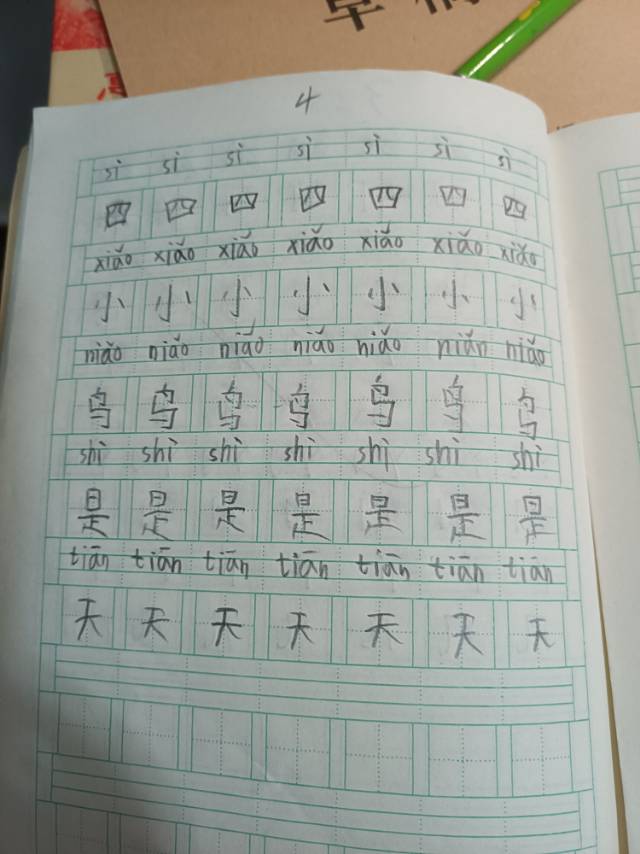 草稿
4
sì sì sì sì sì sì sì
四 四 四 四 四 四 四
xiǎo xiǎo xiǎo xiǎo xiǎo xiǎo xiǎo
小 小 小 小 小 小 小
niǎo niǎo niǎo niǎo niǎo niǎn niǎo
鸟 鸟 鸟 鸟 鸟 鸟 鸟
shì shì shì shì shì shì shì
是 是 是 是 是 是 是
tiān tiān tiān tiān tiān tiān tiān
天 天 天 天 天 天 天